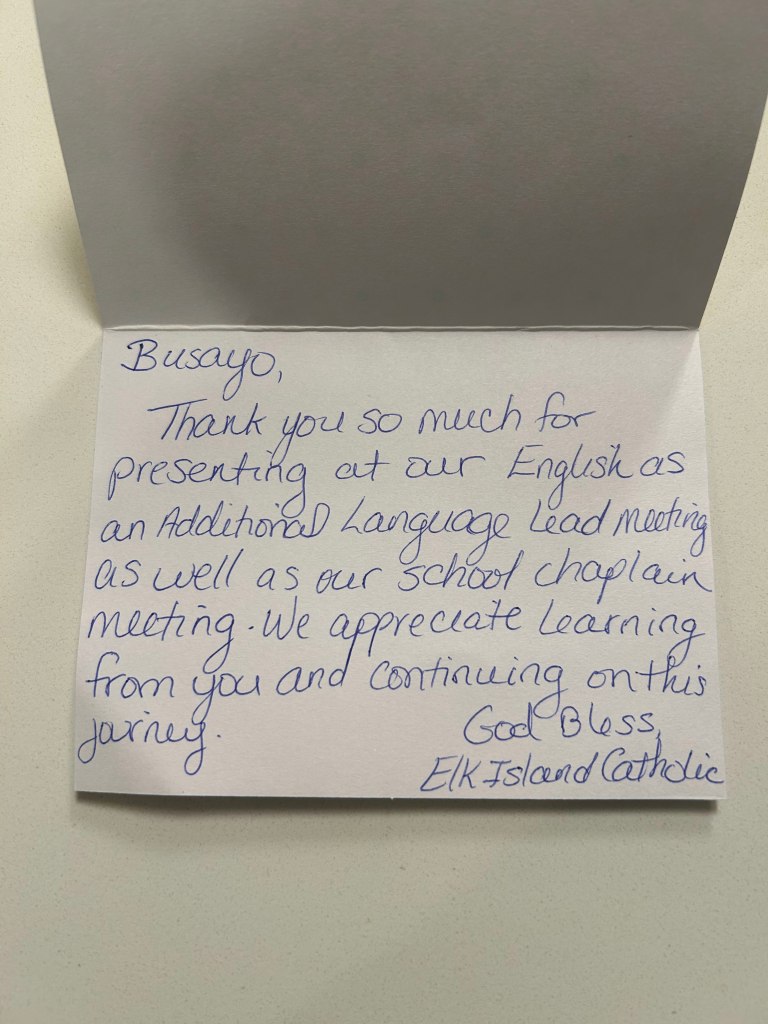 Busayo,
Thank you so much for
presenting at our English as
an Additional Language Lead meeting
as well as our school chaplain
meeting. We appreciate learning
from you and continuing on this
journey.
God Bless,
Elk Island Catholic